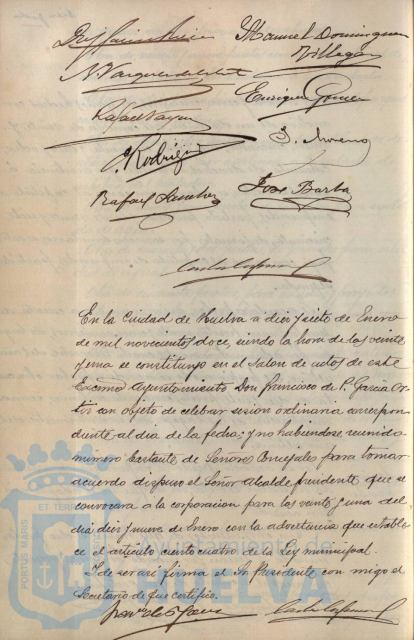 Manuel Dominguez
Villegas
N Vazquez
Enrique Gomez
Rafael
J. Moreno
P. Rodriguez
Rafael Sanchez
José Barba
En la Ciudad de Huelva a diez y siete de Enero
de mil novecientos doce, siendo la hora de las veinte
y una se constituyó en el Salon de actos de este
Excmo Ayuntamiento Don Francisco de P. Garcia Or-
tiz con objeto de celebrar sesion ordinaria correspon-
diente al dia de la fecha; y no habiendose reunido
número bastante de Señores Concejales para tomar
acuerdo dispuso el Señor Alcalde presidente que se
convocara a la corporacion para las veinte y una del
dia diez y nueve de Enero con la advertencia que estable-
ce el artículo ciento cuatro de la Ley municipal.
Y de ser así firma el Sr Presidente con migo el
Secretario de que certifico.
PORTUS MARIS ET TERRÆ
Ayuntamiento de
HUELVA